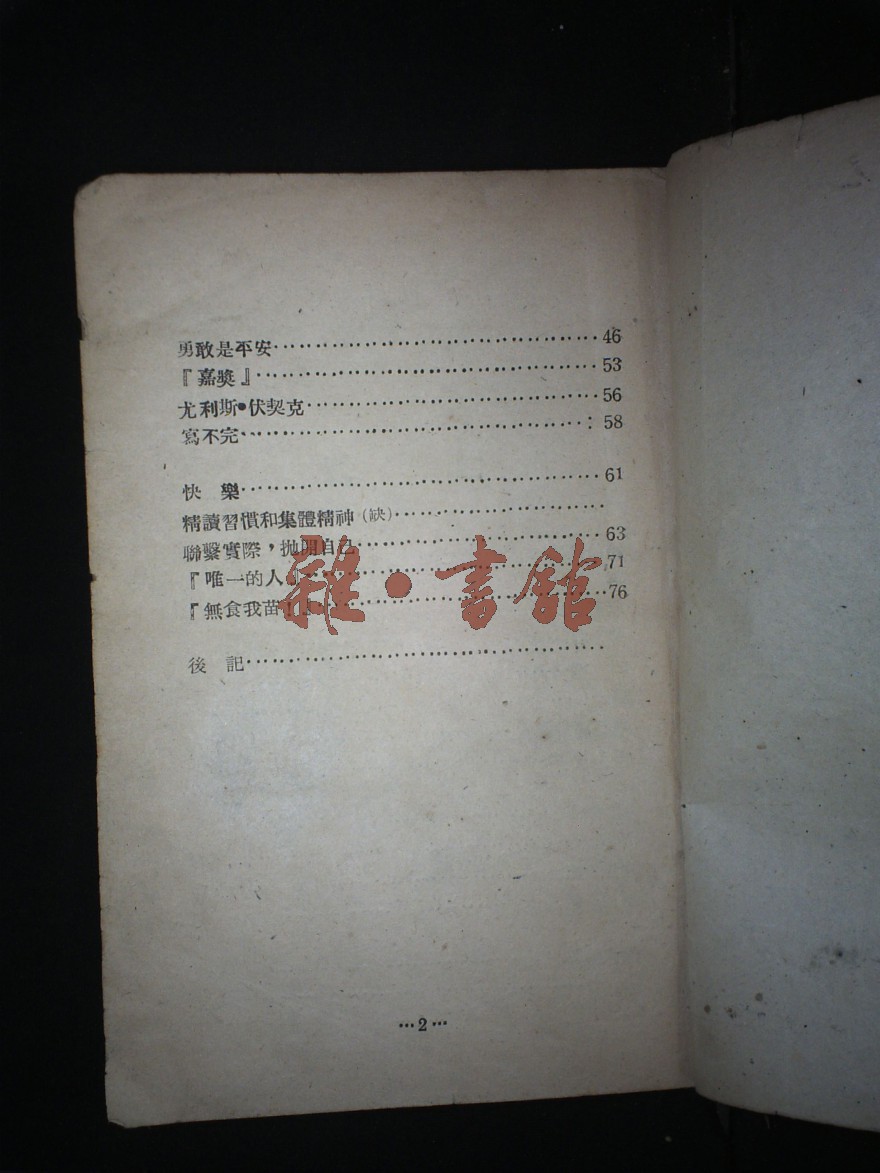 勇敢是平安……………………………46
『嘉獎』……………………………53
尤利斯•伏契克……………………………56
寫不完……………………………：58
快　樂……………………………61
精讀習慣和集體精神（缺）……………………
聯繫實際，拋開自己……………………63
『唯一的人』……………………………71
『無食我苗！』……………………………76
後　記……………………………
雜·書館
…2…